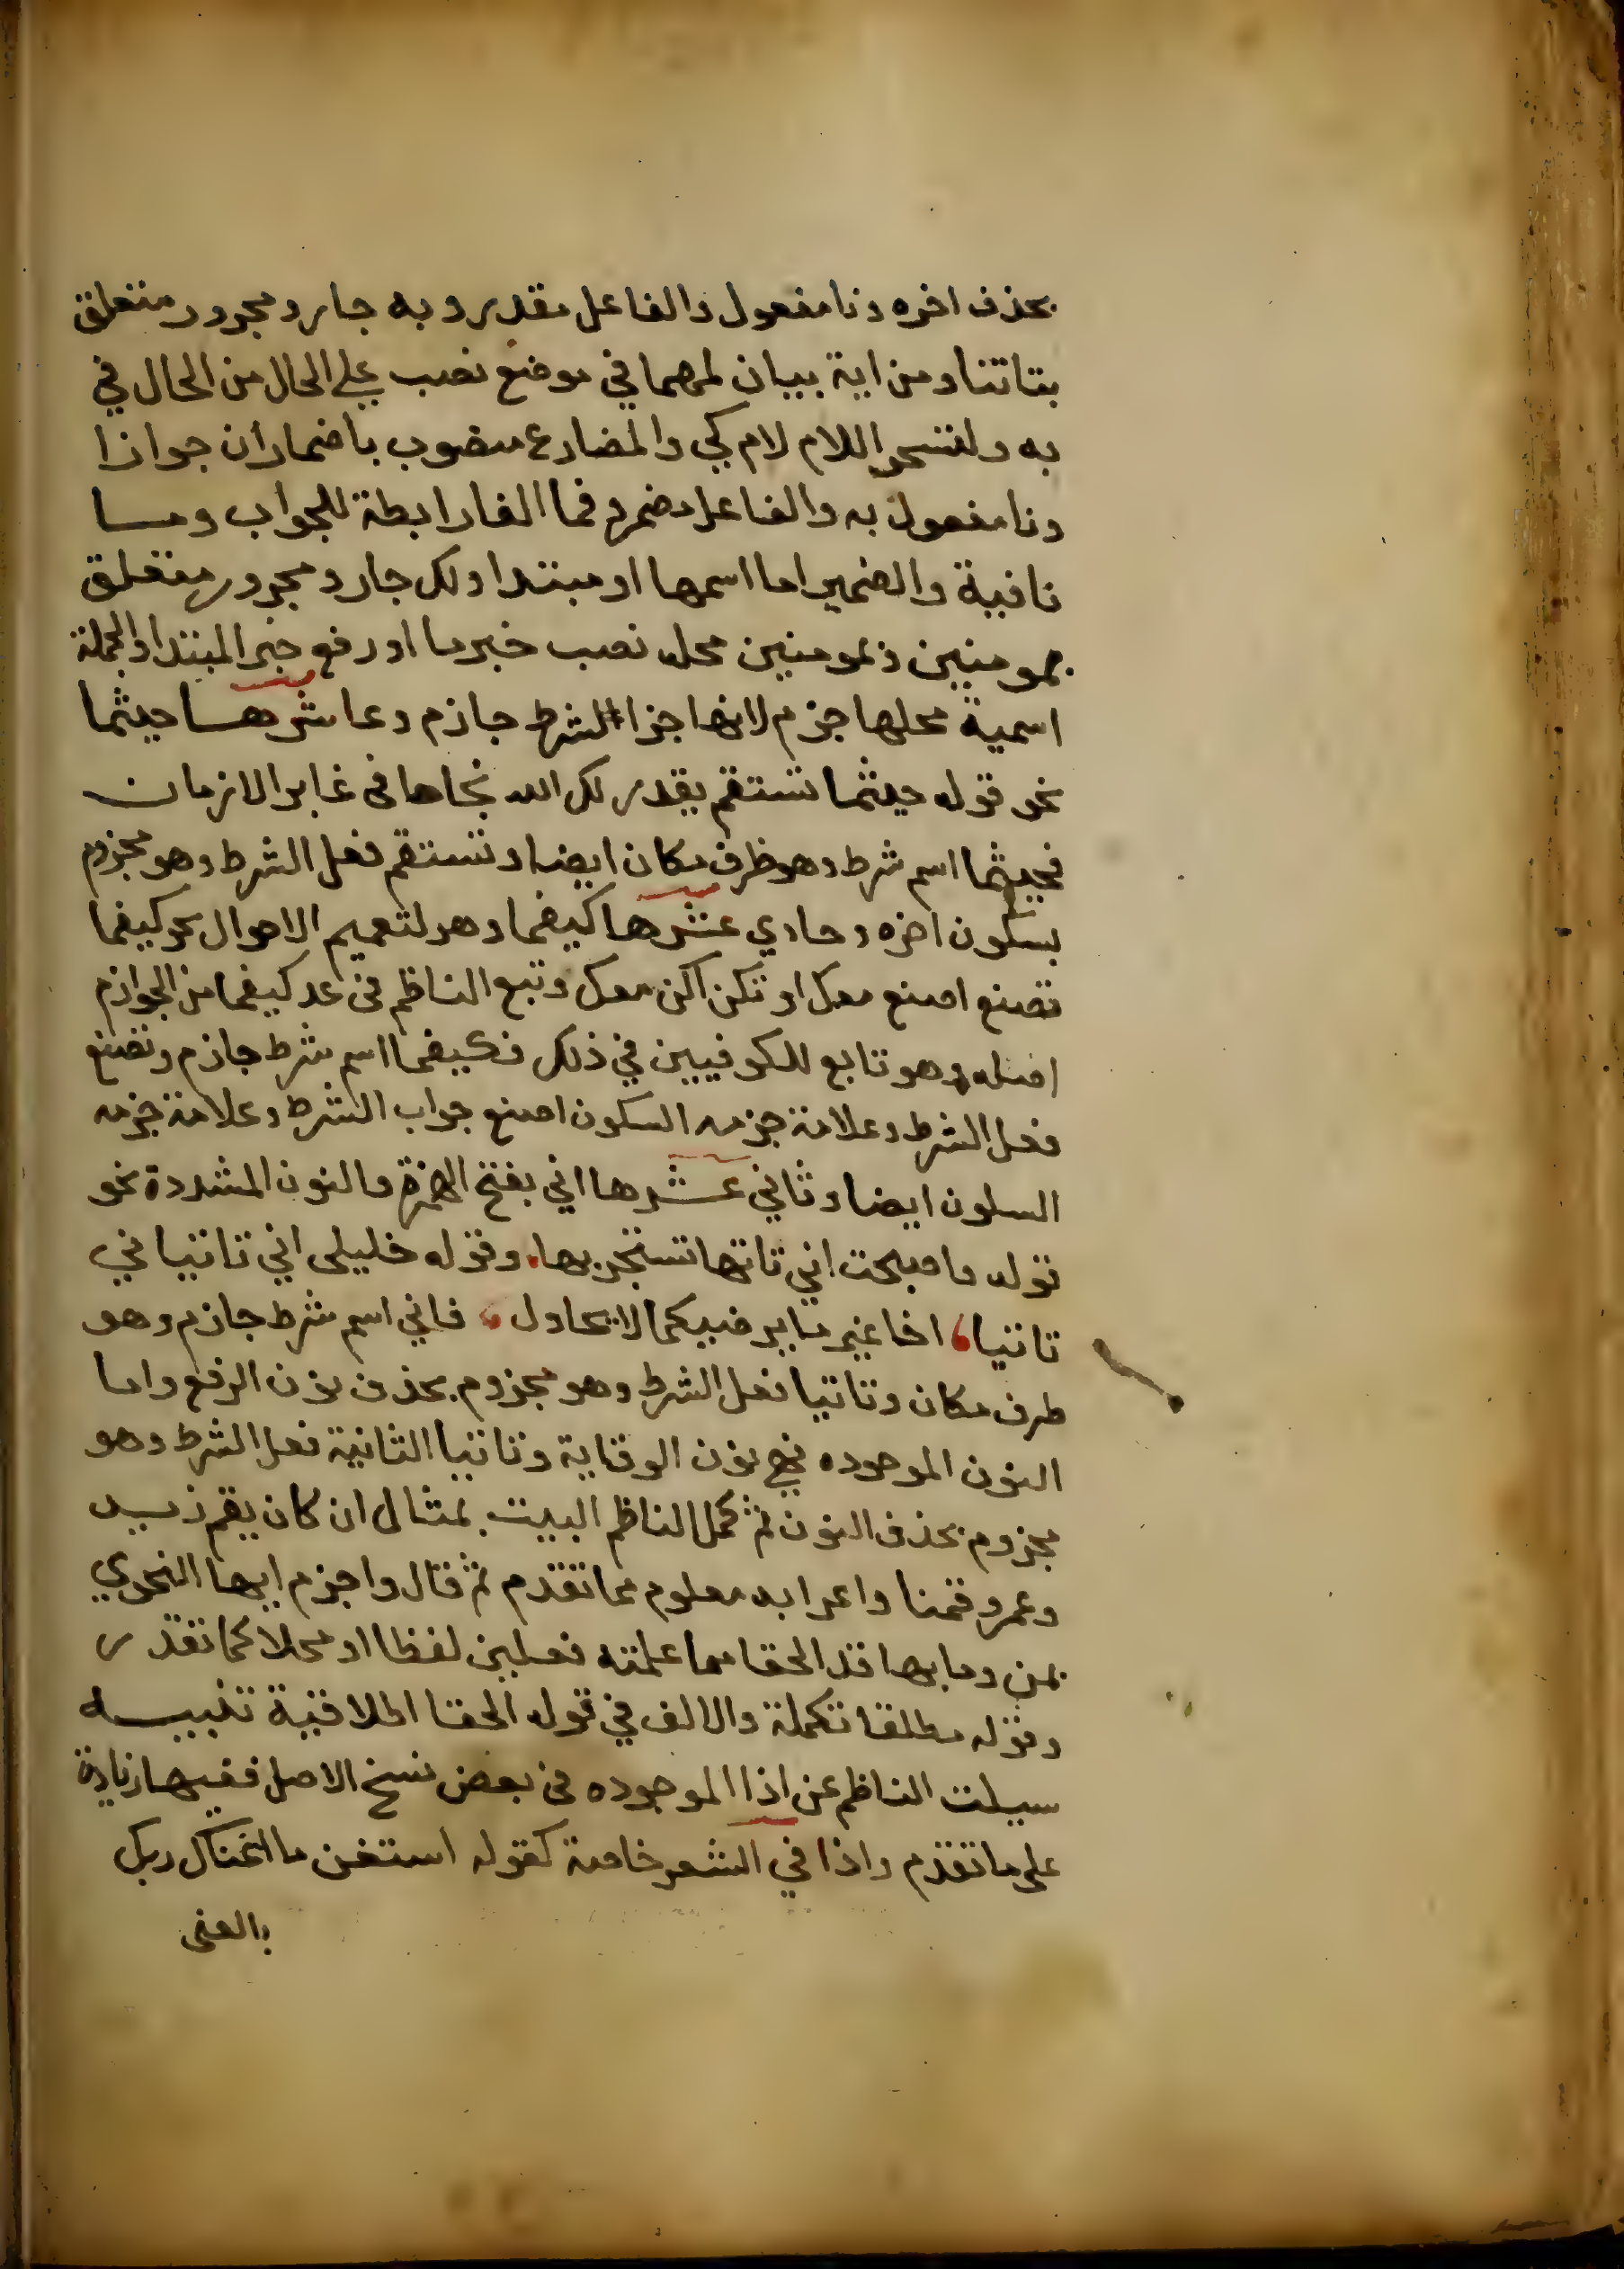 بحذف اخره ونا مفعول والفاعل مقدر وبه جار ومجرور متعلق
بتاتنا ومن اية بيان لمهما في موضع نصب على الحال من الحال في
به ولتسحر اللام لام كي والمضارع منصوب باضمار ان جوازا
ونا مفعول به والفاعل مضمر وفما الفا رابطة للجواب ومسا
نافية والضمير اما اسمها او مبتدا ولك جار ومجرور متعلق
بمومنين وبمومنين محله نصب خبر ما او رفع خبر المبتدا والجملة
اسمية محلها جزم لانها جزا الشرط جازم وعاشرهسا حيثما
نحو قوله حيثما تستقم يقدر لك الله نجاحا في غابر الازمان
فحيثما اسم شرط وهو ظرف مكان ايضا وتستقم فعل الشرط وهو مجزوم
بسكون اخره وحادي عشرها كيفما وهو لتعميم الاحوال نحو كيفما
تصنع اصنع معك او تكن اكن معك وتبع الناظم في عد كيفما من الجوازم
اصله وهو تابع للكوفيين في ذلك فكيفما اسم شرط جازم وتصنع
فعل الشرط وعلامة جزمه السكون اصنع جواب الشرط وعلامة جزمه
السكون ايضا وثاني عشرها اني بفتح الهمزة والنون المشددة نحو
قوله فاصبحت اني تاتها تستجر بها وقوله خليلي اني تاتياني
تاتيا، اخا غير ما يرضيكما لا يحاول، فاني اسم شرط جازم وهو
ظرف مكان وتاتيا فعل الشرط وهو مجزوم بحذف نون الرفع واما
النون الموجوده فهي نون الوقاية وتاتيا الثانية فعل الشرط وهو
مجزوم بحذف النون ثم كمل الناظم البيت بمثال ان كان يقم زيد
وعمرو قمنا واعرابه معلوم مما تقدم ثم قال واجزم ايها النحوي
بمن وما بها قد الحقا مما علمته فعلين لفظا او محلا كما تقدر
وقوله مطلقا تكملة والالف في قوله الحقا اطلاقية تنبيسه
سيلت الناظم عن اذا الموجوده في بعض نسخ الاصل ففيها زيادة
على ما تقدم واذا في الشعر خاصة كقوله استغن ما اغناك ربك
بالغنى